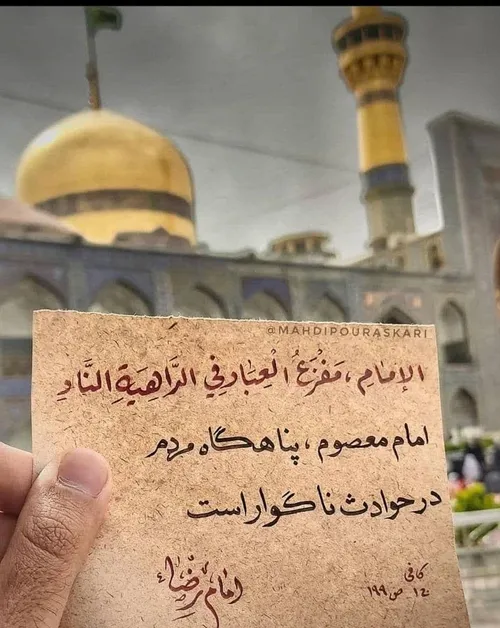 @MAHDIPOURASKARI
الإمامِ ، مَفْزَعُ الْعِبادِ فِي الدَّاهِيَةِ النَّادِ
امام معصوم ، پناهگاه مردم
در حوادث ناگوار است
امام رضاء
کافی
ج۱ ص۱۹۹